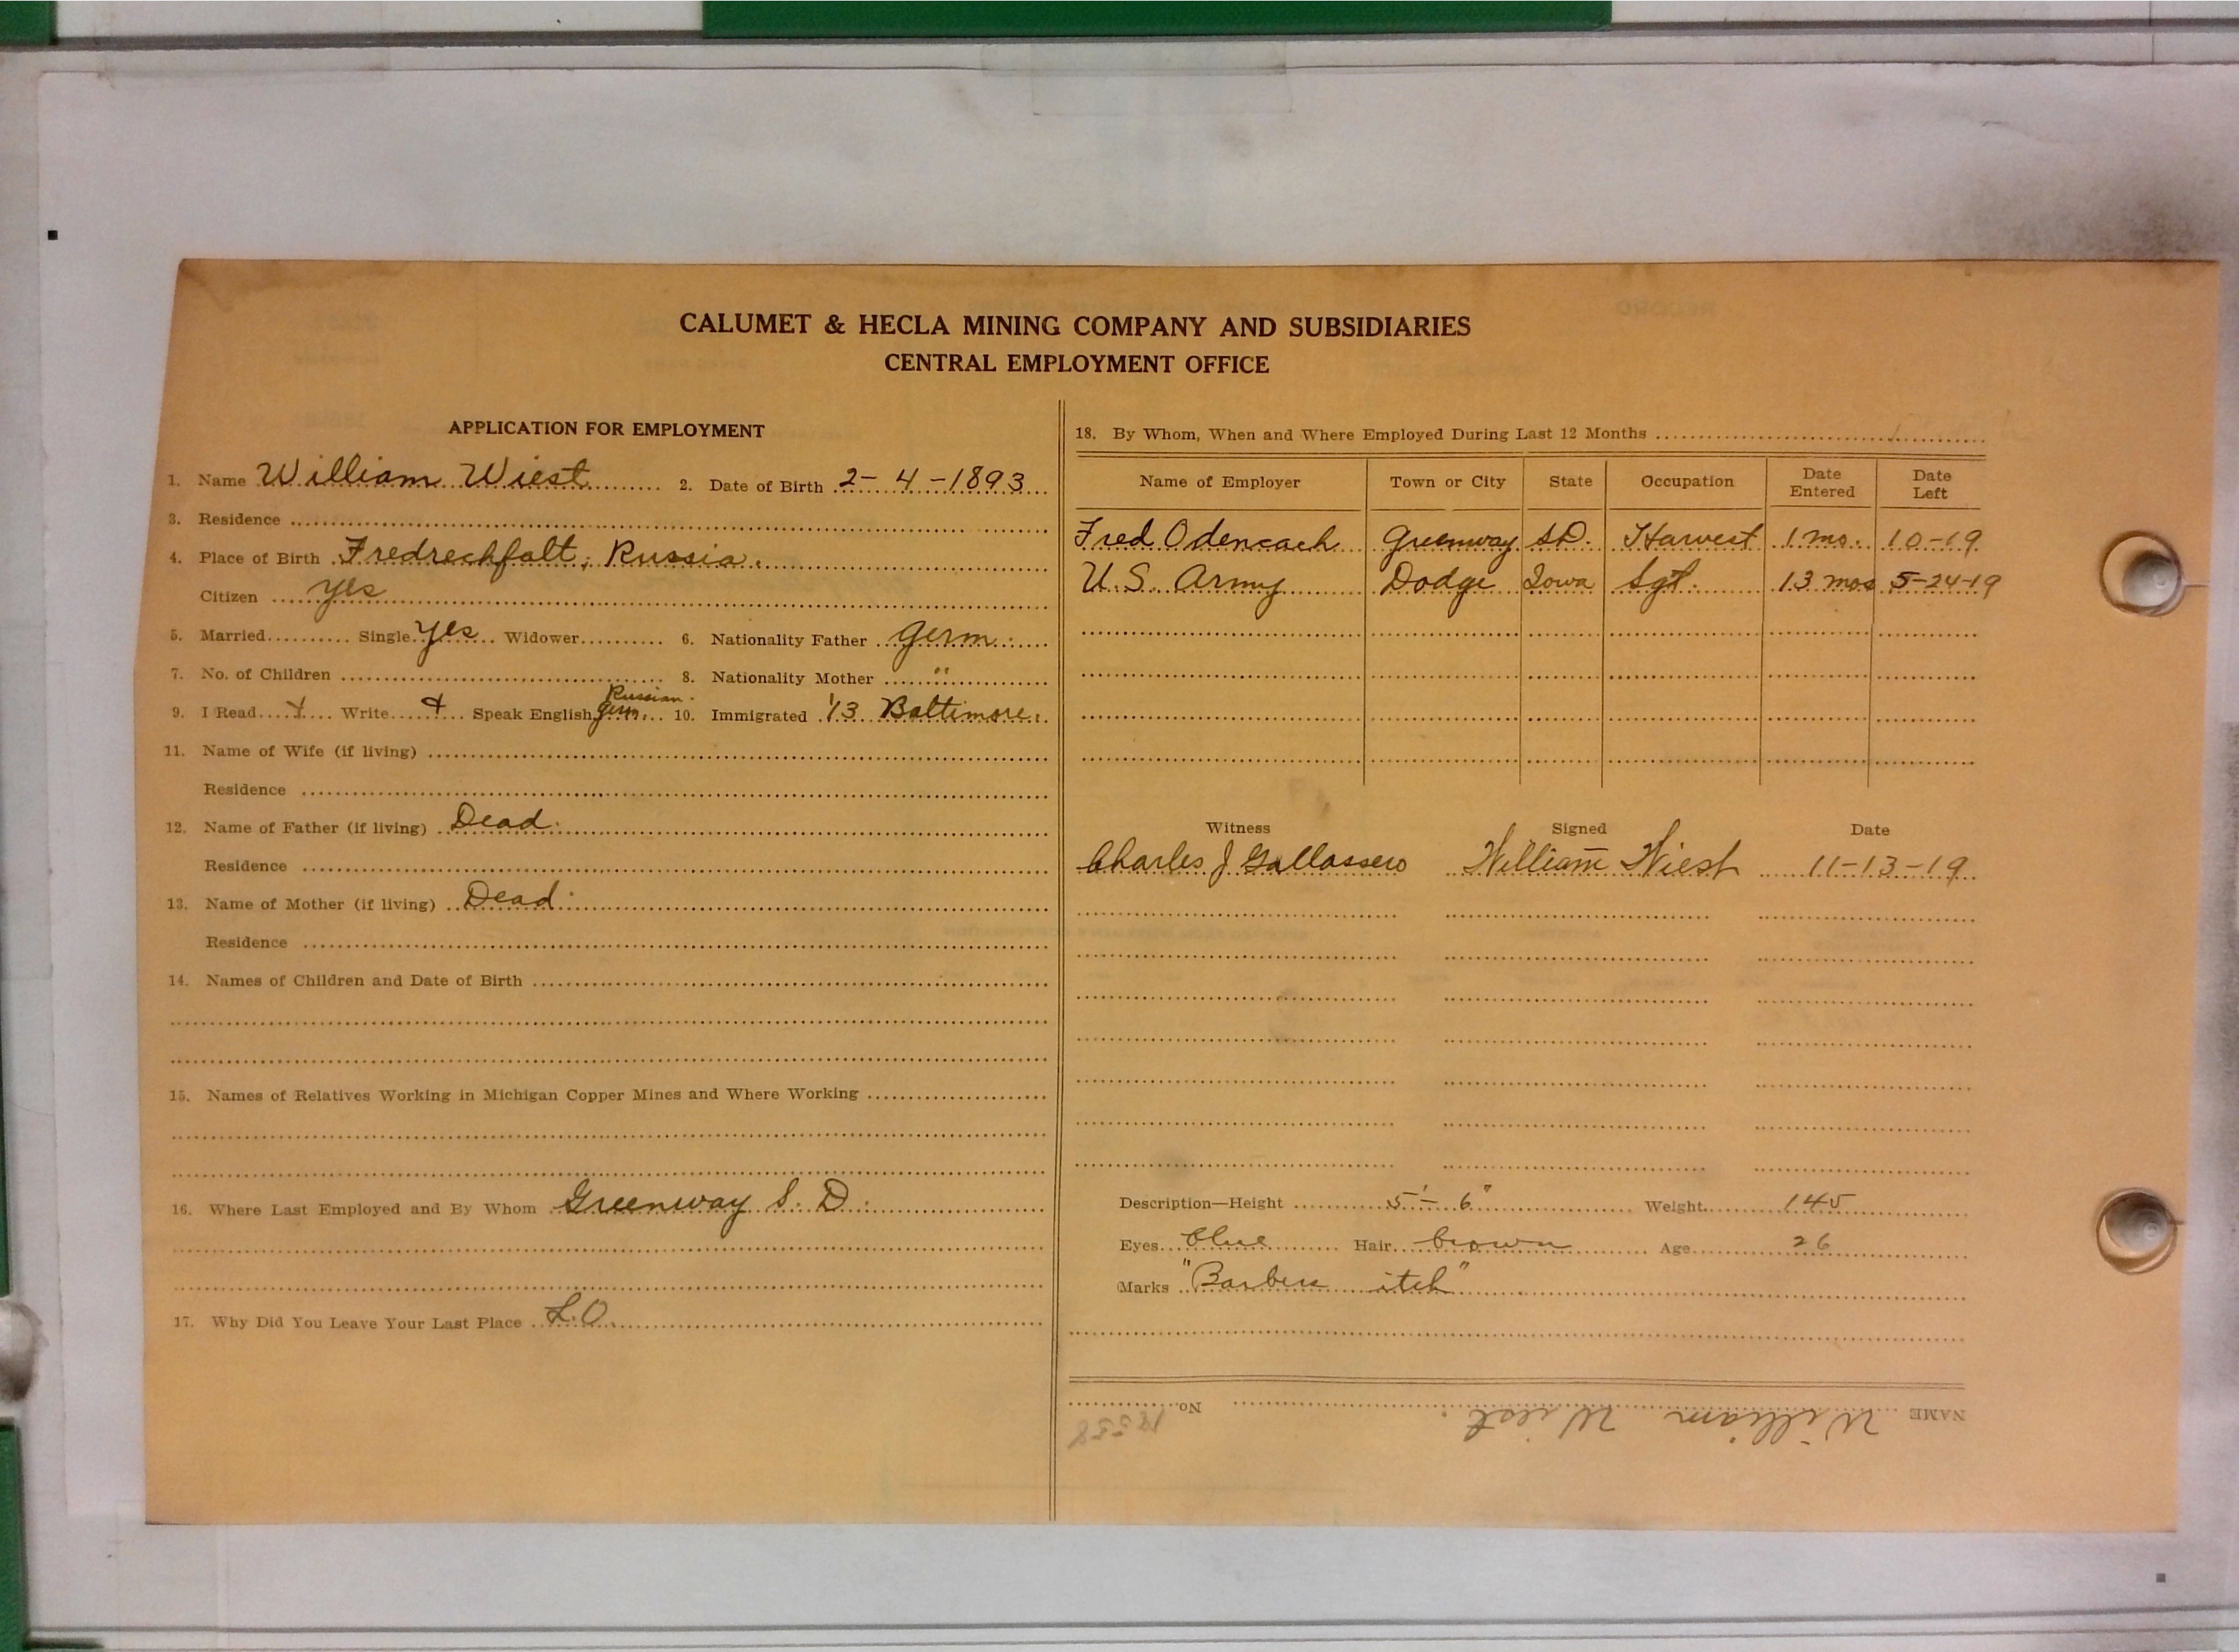 CALUMET & HECLA MINING COMPANY AND SUBSIDIARIES
CENTRAL EMPLOYMENT OFFICE
APPLICATION FOR EMPLOYMENT
1. Name William Wiest 2. Date of Birth 2-4-1893
3. Residence
4. Place of Birth Fredrechfalt, Russia.
Citizen yes
5. Married Single yes Widower 6. Nationality Father Germ.
7. No. of Children 8. Nationality Mother "
9. I Read + Write + Speak English Russian. Germ. 10. Immigrated '13 Baltimore.
11. Name of Wife (if living)
Residence
12. Name of Father (if living) Dead.
Residence
13. Name of Mother (if living) Dead.
Residence
14. Names of Children and Date of Birth
15. Names of Relatives Working in Michigan Copper Mines and Where Working
16. Where Last Employed and By Whom Greenway S. D.
17. Why Did You Leave Your Last Place L.O.
18. By Whom, When and Where Employed During Last 12 Months
Name of Employer Town or City State Occupation Date Entered Date Left
Fred Odencach Greenway S.D. Harvest 1 mo. 10-19
U.S. Army Dodge Iowa Sgt. 13 mos 5-24-19
Witness Signed Date
Charles J Gallassero William Wiest 11-13-19
Description—Height 5'-6" Weight 145
Eyes blue Hair brown Age 26
Marks "Barbers itch"
NAME William Wiest. No.